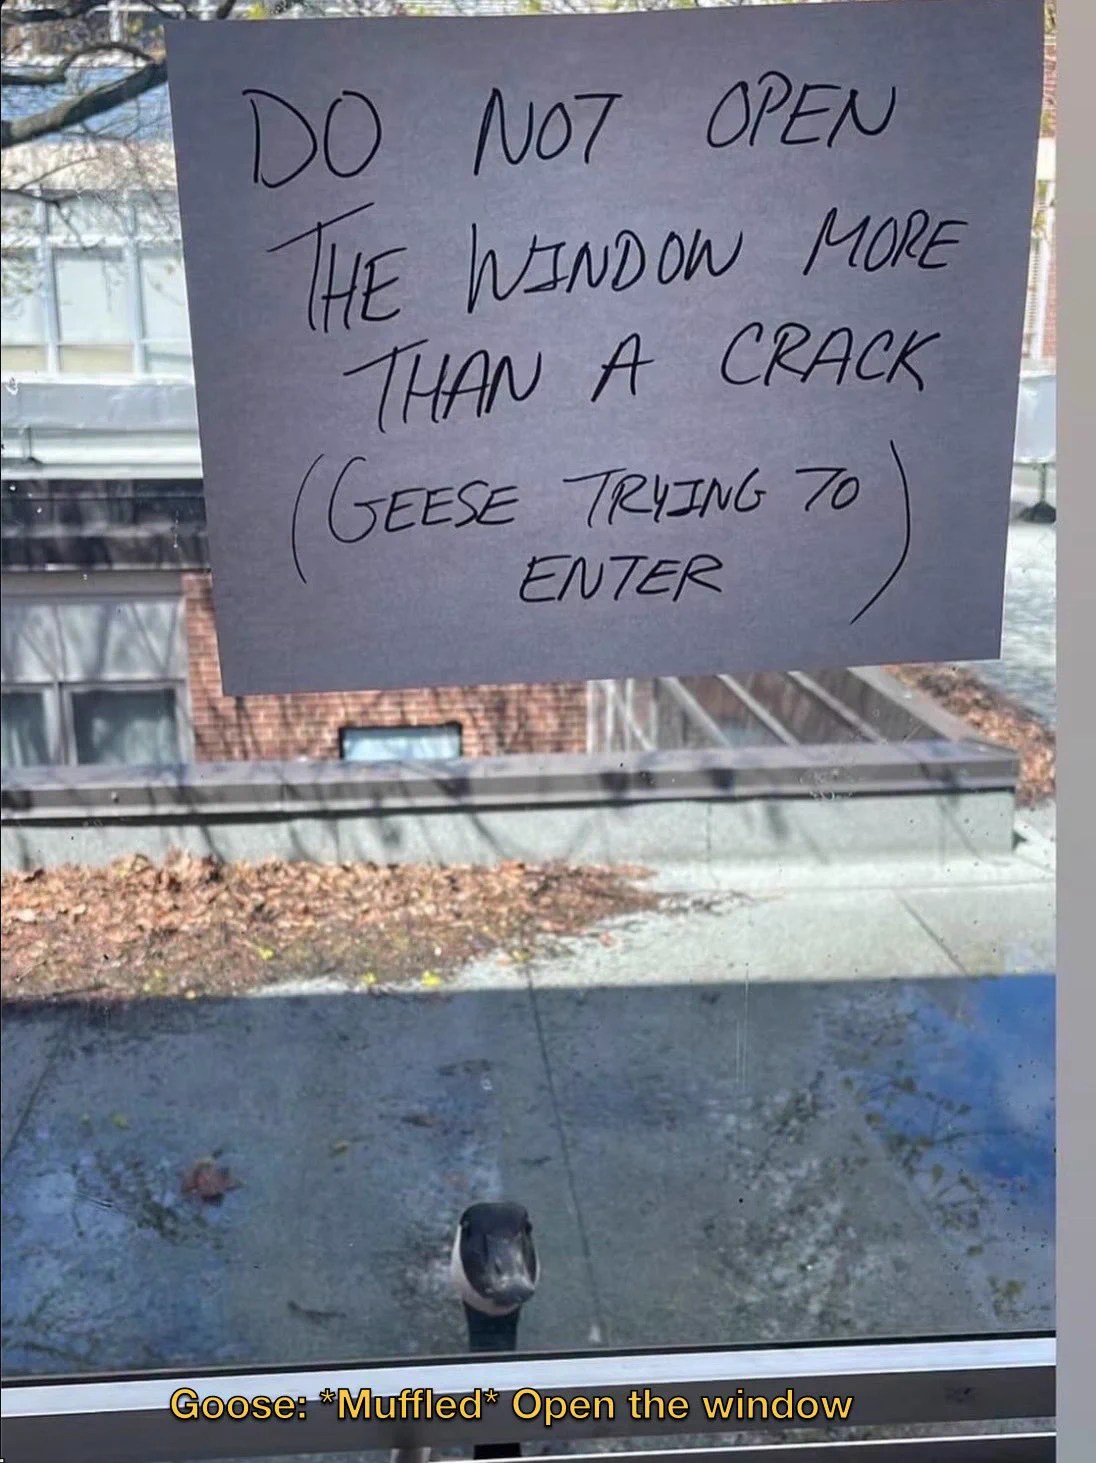 DO NOT OPEN
THE WINDOW MORE
THAN A CRACK
(GEESE TRYING TO
ENTER)
Goose: *Muffled* Open the window